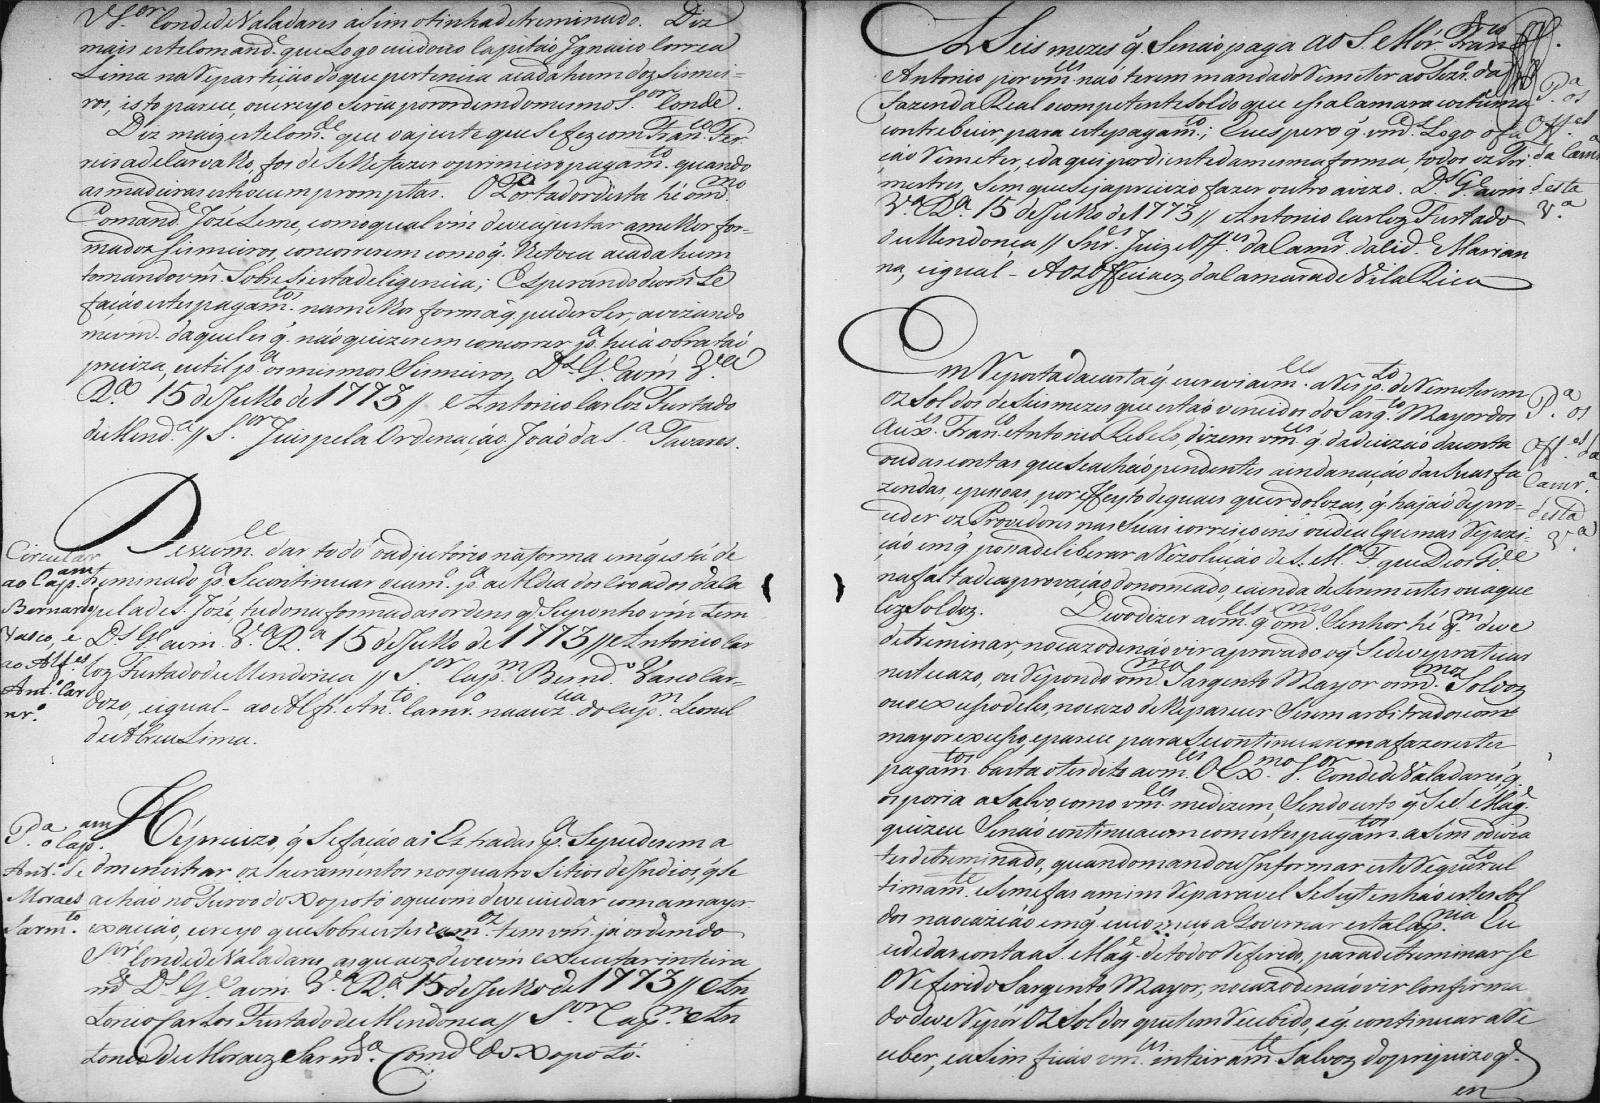 V S.or Conde de Valadares asim o tinha detreminado. Diz
mais este Comand.e que Logo cuidou o Capitão Ignacio Correa
Lima na Repartição do que pertencia a cada hum dos Sismei-
ros, isto parece, ou creyo seria por ordem do mesmo S.or Conde.
Diz maiz este Com.de que o ajuste que se fez com Fran.co Fer-
reira de Carvalho, foi de se lhe fazer o primeiro pagam.to quando
as madeiras estivecem promptas. O Portador desta hé o m.mo
Comand.e Joze Leme, com o qual vm deve ajustar a melhor for-
ma dos Sismeiros, concorrerem com o q. lhe toca a cada hum
tomando vm. Sobre si esta deligencia; Esperando de vm se
fação estes pagam.tos na melhor forma q. puder ser, avizando
me vm. daqueles q. não quizerem concorrer p.a hua obra tão
preciza, e util p.a os mesmos Sismeiros. D.s G.e a vm V.a
R.ca 15 de Julho de 1773 // Antonio Carlos Furtado
de Mend.ça // S.or Juis pela Ordenação João da S.a Tavares.
Circular
ao Cap.am
Bernardo
Vasco, e
ao Alf.es
Ant.o Car
nr.o
Deve vm.ce dar todo o adjutorio na forma em q está de
treminado p.a Se continuar o cam.o p.a a Aldea dos Coroados da Ca
pela de S. José, tudo na forma das ordens q Suponho vm tem
D.s G.e a vm. V.a R.a 15 de Julho de 1773 // Antonio Car
los Furtado de Mendonça // S.or Cap.m Bernd.o Vasco Car-
dozo, e igual - ao Alf. An.to Carnr.o na auz.cia do Cap.m Leonel
de Abreu Lima.
P.a o Cap.am
Ant.o de
Moraes
Sarm.to
Hé precizo, q Se fação as Estradas p.a Se puderem a
dmenistrar os Sacramentos nos quatro Sitios de Indios, q se
achão no Turvo do Xopotó o que vm deve cuidar com a mayor
exação, creyo que sobre estes cam.os tem vm. já ordem do
S.or Conde de Valadares, as quaez deve vm executar inteira
m.te D.s G.e a vm. V.a R.a 15 de Julho de 1773 // An
tonio Carlos Furtado de Mendonca // S.or Cap.m An
tonio de Moraez Sarmd.o Comd.e do Xopotó.
Az Seis mezes q. Senão paga ao S. Mór Fran.co
Antonio, por vm.ces não terem mandado Remeter ao Tezr.o da
Fazenda Real o competente Soldo que essa Camara costuma
contrebuir, para este pagam.to; Eu espero q. vm.ces Logo o fa
ção Remeter, e daqui por diente da mesma forma, todos os Tri
mestres, sem que seja precizo fazer outro avizo. D.s G.e a vm
V.a R.a 15 de Julho de 1773 // Antonio Carlos Furtado
de Mendonca // Snr.es Juiz e Off.es da Camr.a da Cid.e Marian
na, e igual - Aos Officiaez da Camara de Vila Rica
P.a os
Off.es
da Camr.a
desta
V.a
Em Reposta da carta q. escrevi a vm.ces a Resp.to de Remeterem
os Soldos de Seis mezes que estão vencidos do Sarg.to Mayor dos
Aux.es Fran.co Antonio Rebelo, dizem vm.ces q. dadecizão da conta
ou das contas que se achão pendentes ainda na ção das Suas fa
zendas, e pessoas, por effeyto de quaes quer dolozas, q. hajão de pro-
ceder os Provedores nas suas correisoins ou de algumas Depozi-
ção em q. possa deliberar a Rezolução de S. M. F. que Deos G.de
na falta de aprovação do nomeado, e ainda de Serem estes ou aque
les Soldos. Devo dizer a vm.ces q. o m.mo Senhor hé q.m deve
detreminar, no cazo de não vir aprovado o q. Se deve praticar
neste cazo, ou Repondo o m.mo Sargento Mayor os m.mos Soldos
ou o excesso deles, no cazo de lhe parecer Serem arbitrados com
mayor excesso, e parece para Se continuarem a fazer estes
pagam.tos basta o ter dito a vm.ces O Ex.mo S.or Conde de Valadares, q.
os poria a Salvo como vm.ces me dizem, Sendo certo q. Se S. Mag.e
quizece Senão continuacem com estes pagam.tos asim o devia
ter detreminado, quando mandou Informar este Requer.to ul
timam.te e Se me faz a mim Reparavel Se suspenhão estes Sol
dos na ocazião em q. eu começo a Governar esta Cap.nia Eu
cedar conta a S. Mag.e de todo o Referido, para detreminar se
O Referido Sargento Mayor, no cazo de não vir confirma
do deve Repór Os Soldos que tem Recebido, e q. continuar a Re
ceber, e asim ficão vm.ces inteiram.te Salvos do prejuizo q.
em
P.a os
Off.es da
Camr.a
desta
V.a